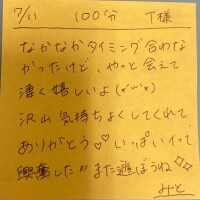 7/11 100分 T様
なかなかタイミング合わな
かったけど、やっと会えて
凄く嬉しいよ(*´∀`*)
沢山気持ちよくしてくれて
ありがとう♡♡いっぱいイって
興奮した〃また遊ぼうね✧✧
みと